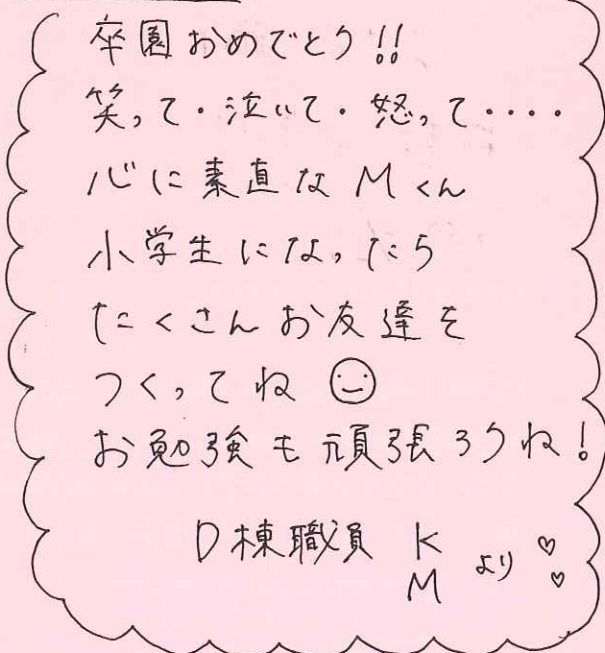 卒園おめでとう!!
笑って・泣いて・怒って・・・・
心に素直なMくん
小学生になったら
たくさんお友達を
つくってね
お勉強も頑張ろうね!
D棟職員 K
M より